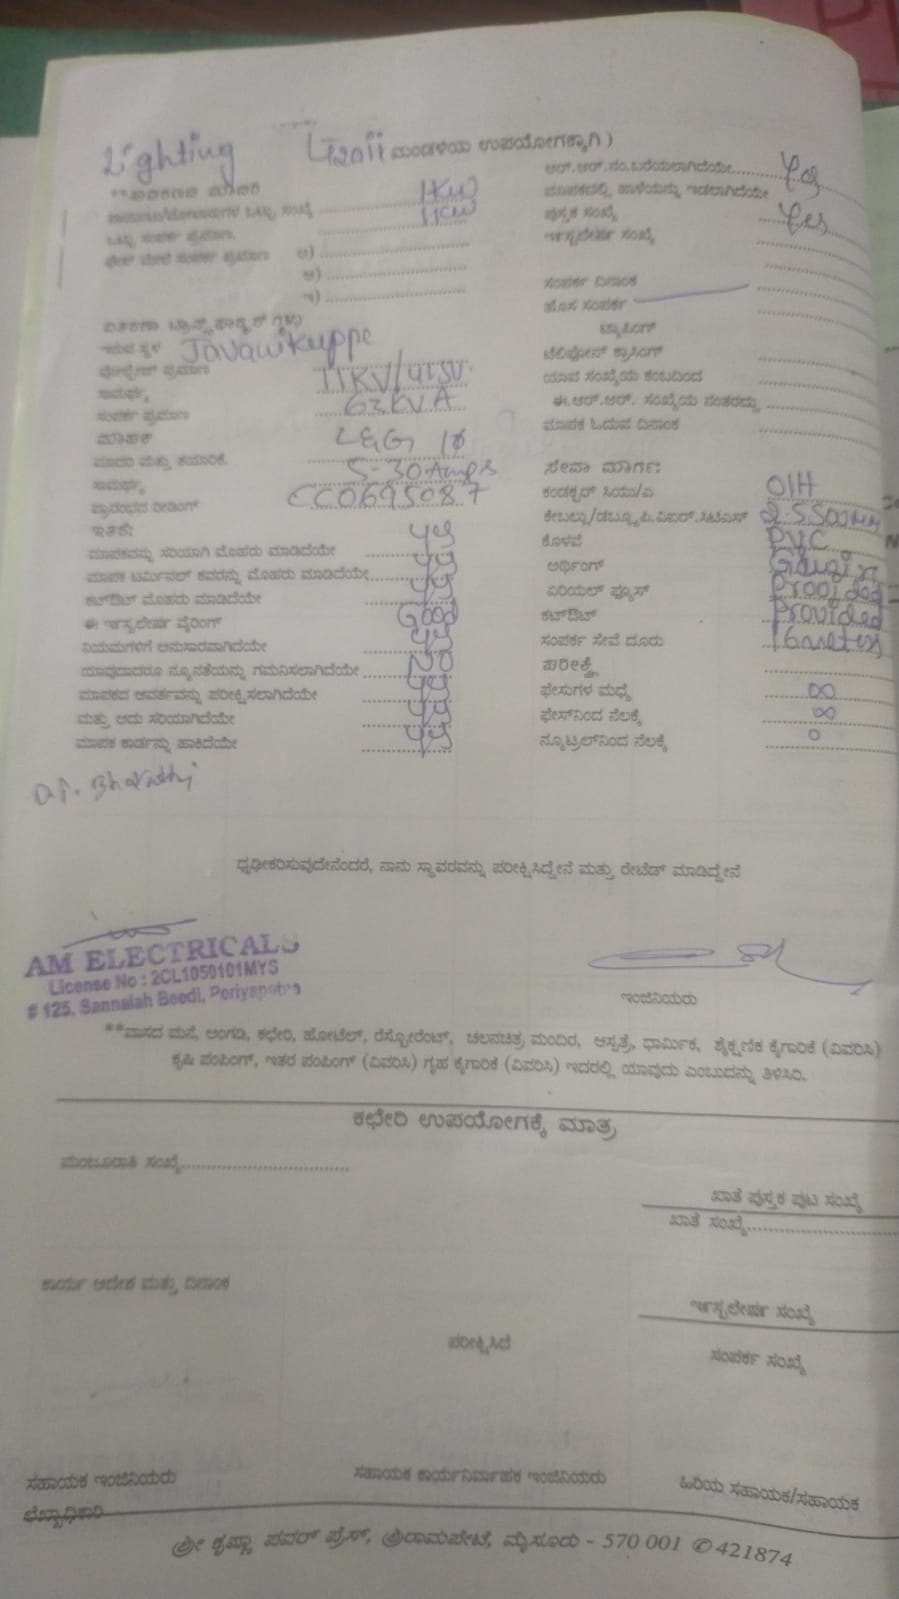 Lighting ಮಂಡಳಿಯ ಉಪಯೋಗಕ್ಕಾಗಿ )
1KW
1KW
ಅ)
ಆ)
ಇ)
ಇರುವ ಸ್ಥಳ Javanikuppe
ವೋಲ್ಟೇಜ್ ಪ್ರಮಾಣ 11KV/415V
ಸಾಮರ್ಥ್ಯ 63KVA
ಸಂಪರ್ಕ ಪ್ರಮಾಣ
ಮಾಪಕ L&G 1Φ
ಮಾದರಿ ಮತ್ತು ತಯಾರಿಕೆ 5-30Amps
ಸಾಮರ್ಥ್ಯ
ಪ್ರಾರಂಭದ ರೀಡಿಂಗ್ CC0695087
ಇತರೆ:
ಮಾಪಕವನ್ನು ಸರಿಯಾಗಿ ಮೊಹರು ಮಾಡಿದೆಯೇ yes
ಮಾಪಕ ಟರ್ಮಿನಲ್ ಕವರನ್ನು ಮೊಹರು ಮಾಡಿದೆಯೇ yes
ಕಟ್‌ಔಟ್ ಮೊಹರು ಮಾಡಿದೆಯೇ yes
ಈ ಇನ್ಸ್ಟಲೇಷನ್ ವೈರಿಂಗ್ Good
ನಿಯಮಗಳಿಗೆ ಅನುಸಾರವಾಗಿದೆಯೇ yes
ಯಾವುದಾದರೂ ನ್ಯೂನತೆಯನ್ನು ಗಮನಿಸಲಾಗಿದೆಯೇ NO
ಮಾಪಕದ ಆವರ್ತವನ್ನು ಪರೀಕ್ಷಿಸಲಾಗಿದೆಯೇ yes
ಮತ್ತು ಅದು ಸರಿಯಾಗಿದೆಯೇ yes
ಮಾಪಕ ಕಾರ್ಡನ್ನು ಹಾಕಿದೆಯೇ yes
ಆರ್.ಆರ್.ನಂ.ಬರೆಯಲಾಗಿದೆಯೇ Yes
ಮಾಪಕದಲ್ಲಿ ಹಾಳೆಯನ್ನು ಇಡಲಾಗಿದೆಯೇ
ಪುಸ್ತಕ ಸಂಖ್ಯೆ Yes
ಇನ್ಸ್ಟಲೇಷನ್ ಸಂಖ್ಯೆ
ಸಂಪರ್ಕ ದಿನಾಂಕ
ಹೊಸ ಸಂಪರ್ಕ
ಟ್ಯಾಪಿಂಗ್
ಟೆಲಿಫೋನ್ ಕ್ರಾಸಿಂಗ್
ಯಾವ ಸಂಖ್ಯೆಯ ಕಂಬದಿಂದ
ಈ.ಆರ್.ಆರ್. ಸಂಖ್ಯೆಯ ನಂತರದ್ದು
ಮಾಪಕ ಓದುವ ದಿನಾಂಕ
ಸೇವಾ ಮಾರ್ಗ:
ಕಂಡಕ್ಟರ್ ಸಿಯು/ಎ OIH
ಕೇಬಲ್ಲು/ಡಬ್ಲ್ಯೂ.ಪಿ.ವಿಐಆರ್.ಸಿಟಿಎಸ್
ಕೊಳವೆ PVC
ಅರ್ಥಿಂಗ್
ಏರಿಯಲ್ ಫ್ಯೂಸ್
ಕಟ್‌ಔಟ್ Provided
ಸಂಪರ್ಕ ಸೇವೆ ದೂರು
ಪರೀಕ್ಷೆ
ಫೇಸುಗಳ ಮಧ್ಯೆ ∞
ಫೇಸ್‌ನಿಂದ ನೆಲಕ್ಕೆ ∞
ನ್ಯೂಟ್ರಲ್‌ನಿಂದ ನೆಲಕ್ಕೆ 0
Bharathi
ಧೃಢೀಕರಿಸುವುದೇನೆಂದರೆ, ನಾನು ಸ್ಥಾವರವನ್ನು ಪರೀಕ್ಷಿಸಿದ್ದೇನೆ ಮತ್ತು ರೇಟೆಡ್ ಮಾಡಿದ್ದೇನೆ
AM ELECTRICALS
License No : 2CL1050101MYS
# 125, Sannaiah Beedi, Periyapatna
ಇಂಜಿನಿಯರು
**ವಾಸದ ಮನೆ, ಅಂಗಡಿ, ಕಛೇರಿ, ಹೋಟೆಲ್, ರೆಸ್ಟೋರೆಂಟ್, ಚಲನಚಿತ್ರ ಮಂದಿರ, ಆಸ್ಪತ್ರೆ, ಧಾರ್ಮಿಕ, ಶೈಕ್ಷಣಿಕ ಕೈಗಾರಿಕೆ (ವಿವರಿಸಿ)
ಕೃಷಿ ಪಂಪಿಂಗ್, ಇತರ ಪಂಪಿಂಗ್ (ವಿವರಿಸಿ) ಗೃಹ ಕೈಗಾರಿಕೆ (ವಿವರಿಸಿ) ಇದರಲ್ಲಿ ಯಾವುದು ಎಂಬುದನ್ನು ತಿಳಿಸಿರಿ.
ಕಛೇರಿ ಉಪಯೋಗಕ್ಕೆ ಮಾತ್ರ
ಮಂಜೂರಾತಿ ಸಂಖ್ಯೆ
ಖಾತೆ ಪುಸ್ತಕ ಪುಟ ಸಂಖ್ಯೆ
ಖಾತೆ ಸಂಖ್ಯೆ
ಕಾರ್ಯ ಆದೇಶ ಮತ್ತು ದಿನಾಂಕ
ಇನ್ಸ್ಟಲೇಷನ್ ಸಂಖ್ಯೆ
ಪರೀಕ್ಷಿಸಿದೆ
ಸಂಪರ್ಕ ಸಂಖ್ಯೆ
ಸಹಾಯಕ ಇಂಜಿನಿಯರು
ಸಹಾಯಕ ಕಾರ್ಯನಿರ್ವಾಹಕ ಇಂಜಿನಿಯರು
ಹಿರಿಯ ಸಹಾಯಕ/ಸಹಾಯಕ
ಲೆಕ್ಕಾಧಿಕಾರಿ
ಶ್ರೀ ಕೃಷ್ಣಾ ಪವರ್ ಪ್ರೆಸ್, ಶ್ರೀರಾಮಪೇಟೆ, ಮೈಸೂರು - 570 001 ✆ 421874